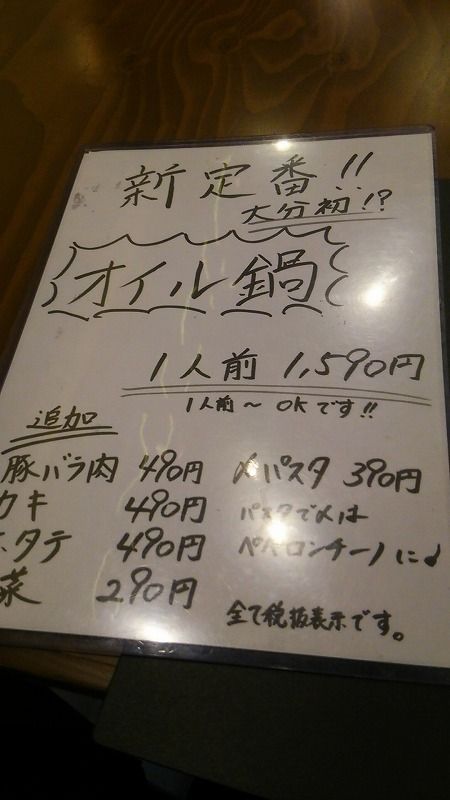 新定番!!
大分初!?
オイル鍋
1人前 1,590円
1人前~OKです!!
追加
豚バラ肉 490円
カキ 490円
ホタテ 490円
菜 290円
〆パスタ 390円
パスタで〆は
ペペロンチーノに♪
全て税抜表示です。